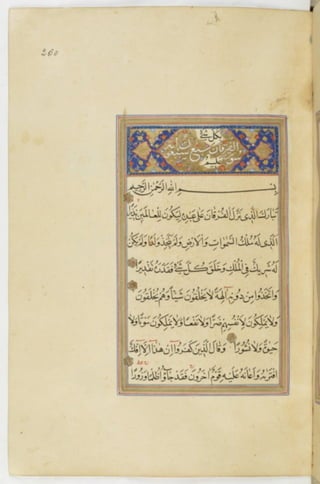 260
بكل شئ
سورة الفرقان سبع وسبعون آية
عليم
بسم الله الرحمن الرحيم
تَبَارَكَ الَّذِي نَزَّلَ الْفُرْقَانَ عَلَى عَبْدِهِ لِيَكُونَ لِلْعَالَمِينَ نَذِيرًا
الَّذِي لَهُ مُلْكُ السَّمٰوَاتِ وَالْاَرْضِ وَلَمْ يَتَّخِذْ وَلَدًا وَلَمْ يَكُنْ
لَهُ شَرِيكٌ فِي الْمُلْكِ وَخَلَقَ كُلَّ شَئٍ فَقَدَّرَهُ تَقْدِيرًا
وَاتَّخَذُوا مِنْ دُونِهِ اٰلِهَةً لَا يَخْلُقُونَ شَيْئًا وَهُمْ يُخْلَقُونَ
وَلَا يَمْلِكُونَ لِاَنْفُسِهِمْ ضَرًّا وَلَا نَفْعًا وَلَا يَمْلِكُونَ مَوْتًا وَلَا
حَيٰوةً وَلَا نُشُورًا وَقَالَ الَّذِينَ كَفَرُوا اِنْ هٰذَا اِلَّا اِفْكٌ
افْتَرٰيهُ وَاَعَانَهُ عَلَيْهِ قَوْمٌ اٰخَرُونَ فَقَدْ جَاؤُ ظُلْمًا وَزُورًا